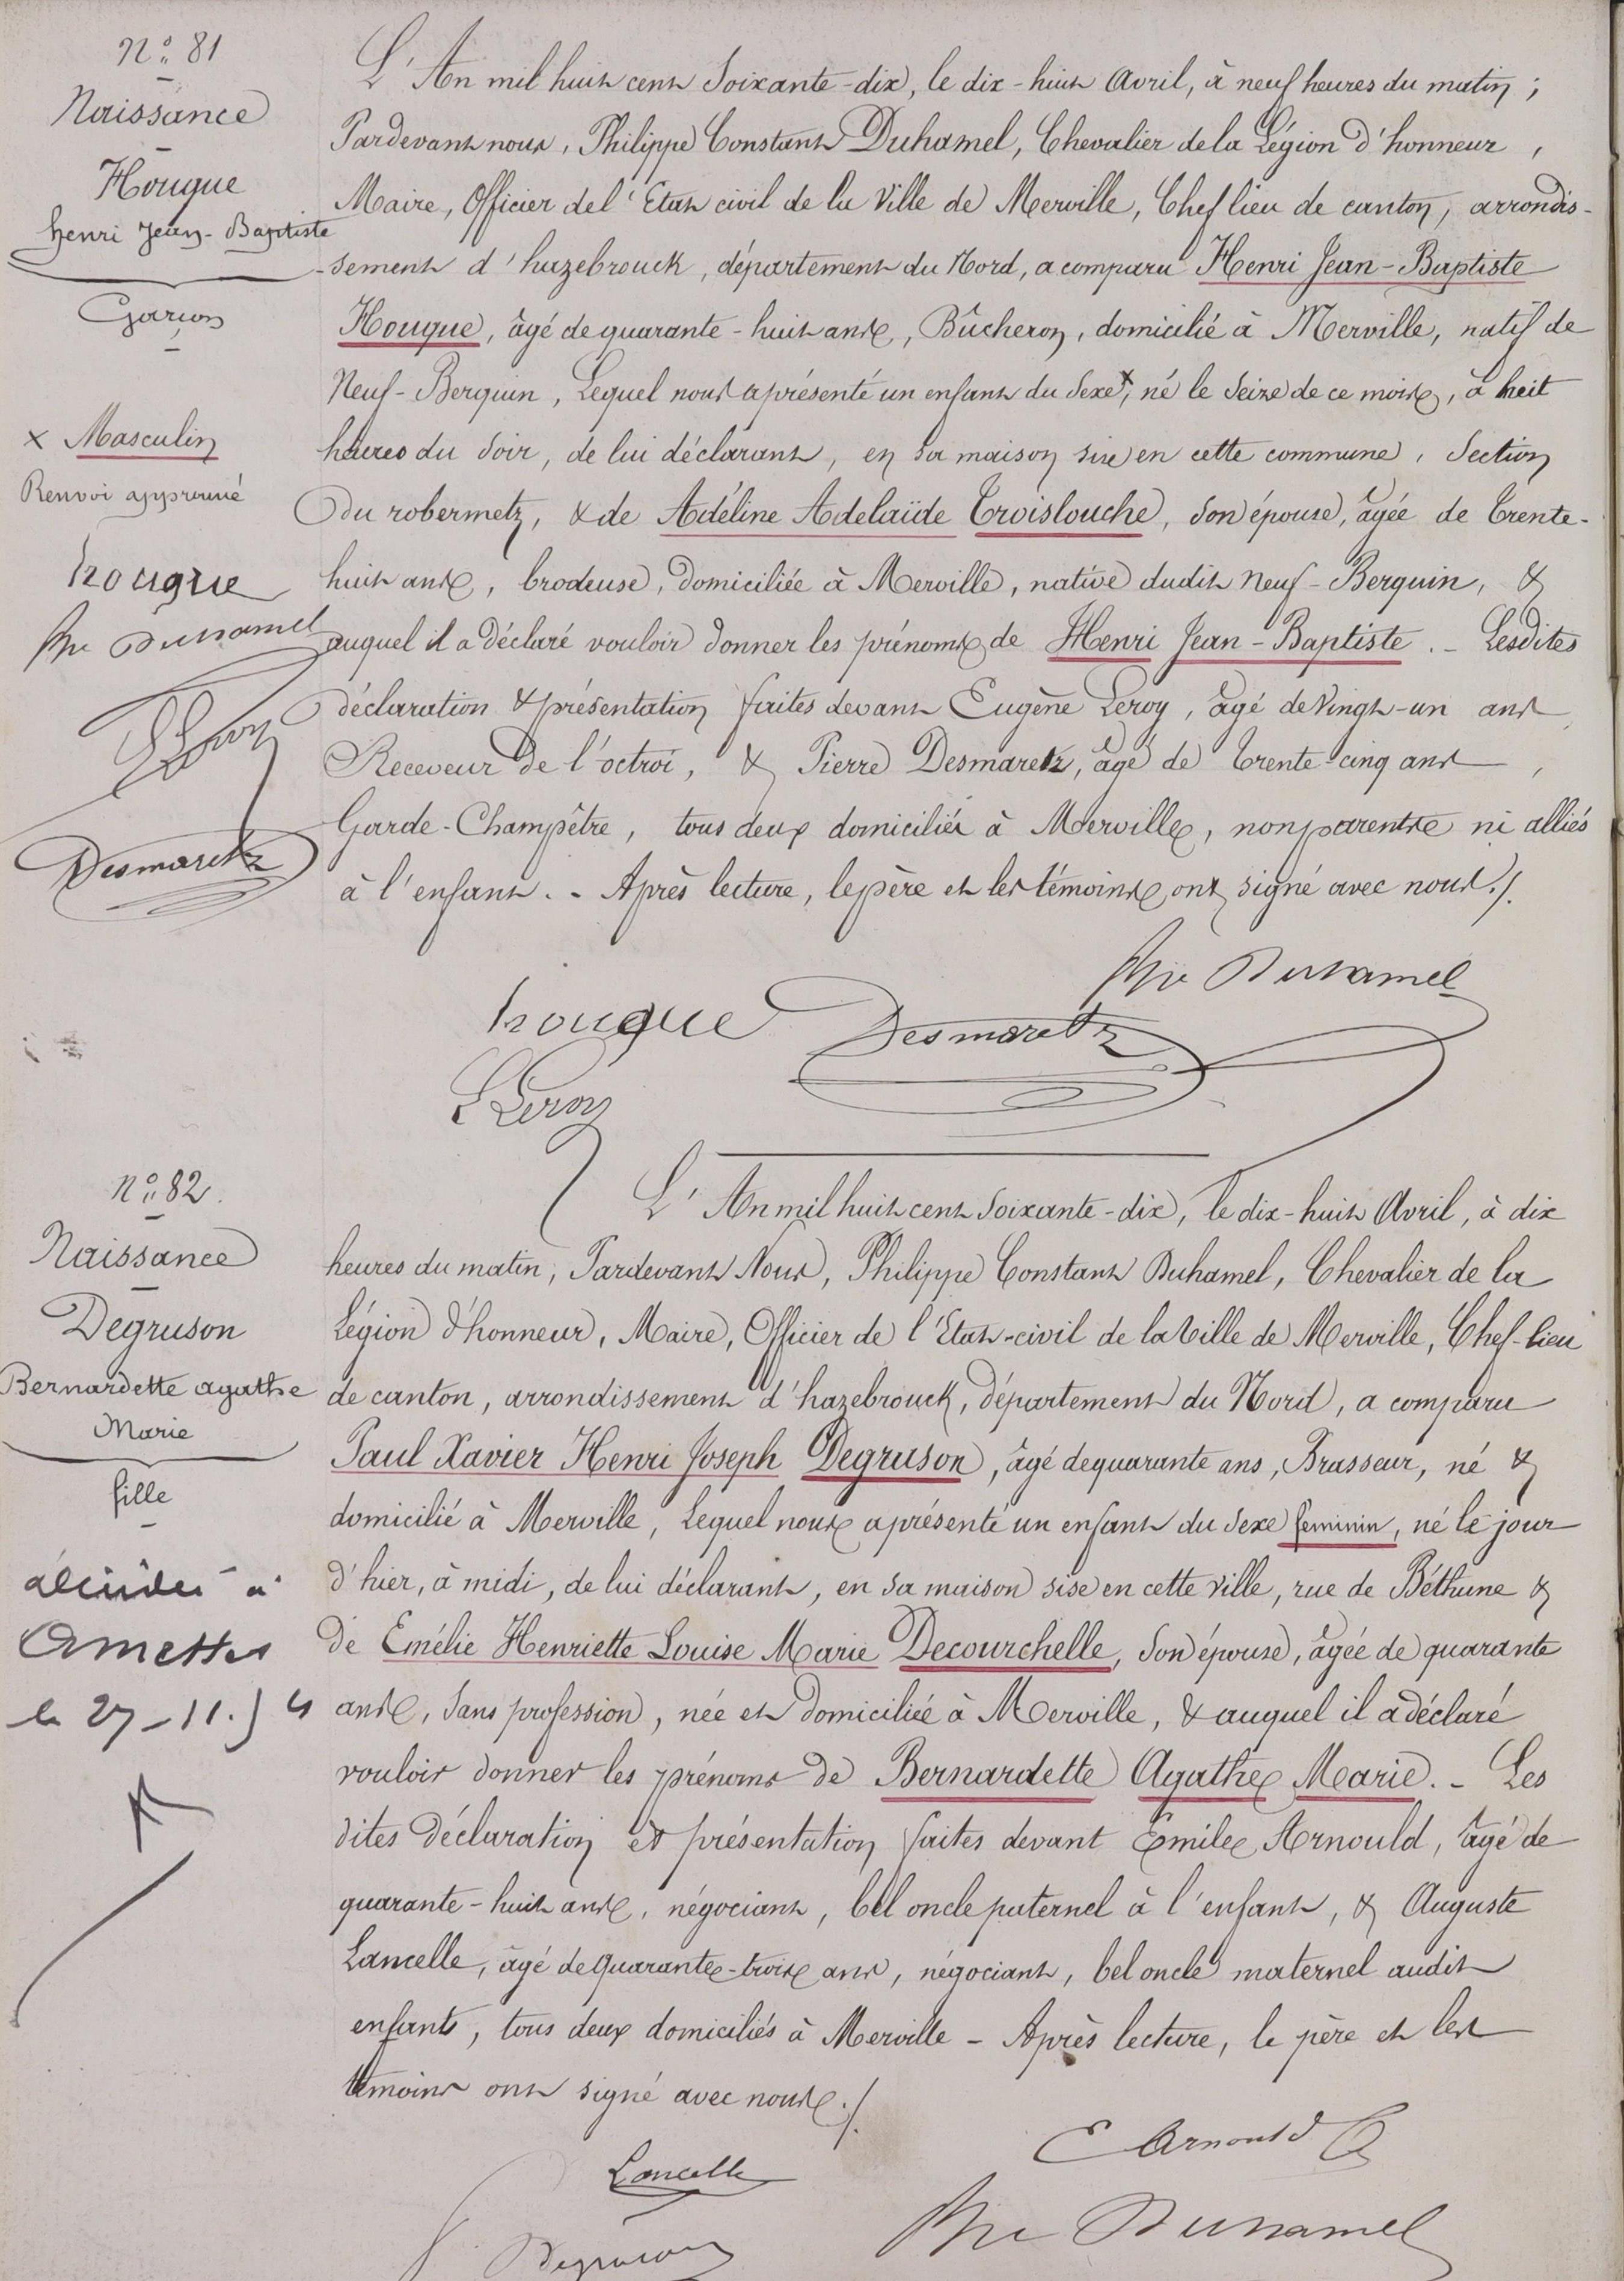 N° 81
Naissance
Hougue
henri Jean-Baptiste
Garçon
x Masculin
Renvoi approuvé
hougue
Phe Duhamel
E Leroy
Desmaretz
L'An mil huit cent soixante-dix, le dix-huit Avril, à neuf heures du matin ;
Pardevant nous, Philippe Constant Duhamel, Chevalier de la Légion d'honneur,
Maire, Officier de l'Etat civil de la Ville de Merville, Chef lieu de canton, arrondis-
-sement d'hazebrouck, département du Nord, a comparu Henri Jean-Baptiste
Hougue, âgé de quarante-huit ans, Bûcheron, domicilié à Merville, natif de
Neuf-Berquin, Lequel nous a présenté un enfant du sexe x, né le seize de ce mois, à heit
heures du soir, de lui déclarant, en sa maison sise en cette commune, Section
Du robermetz, & de Adéline Adelaïde Troislouche, son épouse, âgée de Trente-
huit ans, brodeuse, domiciliée à Merville, native dudit Neuf-Berquin, &
auquel il a déclaré vouloir donner les prénoms de Henri Jean-Baptiste. - Lesdites
déclaration & présentation faites devant Eugène Leroy, âgé de Vingt-un ans,
Receveur de l'octroi, & Pierre Desmaretz, âgé de Trente-cinq ans,
Garde-Champêtre, tous deux domiciliés à Merville, non parents ni alliés
à l'enfant. - Après lecture, le père et les témoins ont signé avec nous./.
Phe Duhamel
hougue Desmaretz
E Leroy
N° 82.
Naissance
Degruson
Bernardette agathe
Marie
fille
décédée à
Amettes
le 27-11.54
L'An mil huit cent soixante-dix, le dix-huit Avril, à dix
heures du matin, Pardevant Nous, Philippe Constant Duhamel, Chevalier de la
Légion d'honneur, Maire, Officier de l'Etat-civil de la Ville de Merville, Chef-lieu
de canton, arrondissement d'hazebrouck, département du Nord, a comparu
Paul Xavier Henri Joseph Degruson, âgé de quarante ans, Brasseur, né &
domicilié à Merville, Lequel nous a présenté un enfant du sexe feminin, né le jour
d'hier, à midi, de lui déclarant, en sa maison sise en cette ville, rue de Béthune &
de Emélie Henriette Louise Marie Decourchelle, son épouse, âgée de quarante
ans, sans profession, née et domiciliée à Merville, & auquel il a déclaré
vouloir donner les prénoms de Bernardette Agathe Marie. - Les
dites déclaration et présentation faites devant Emile Arnould, âgé de
quarante-huit ans, négociant, bel oncle paternel à l'enfant, & Auguste
Lancelle, âgé de quarante-trois ans, négociant, bel oncle maternel audit
enfants, tous deux domiciliés à Merville - Après lecture, le père et les
témoins ont signé avec nous./.
E Arnould
Lancelle
Phe Duhamel
Degruson